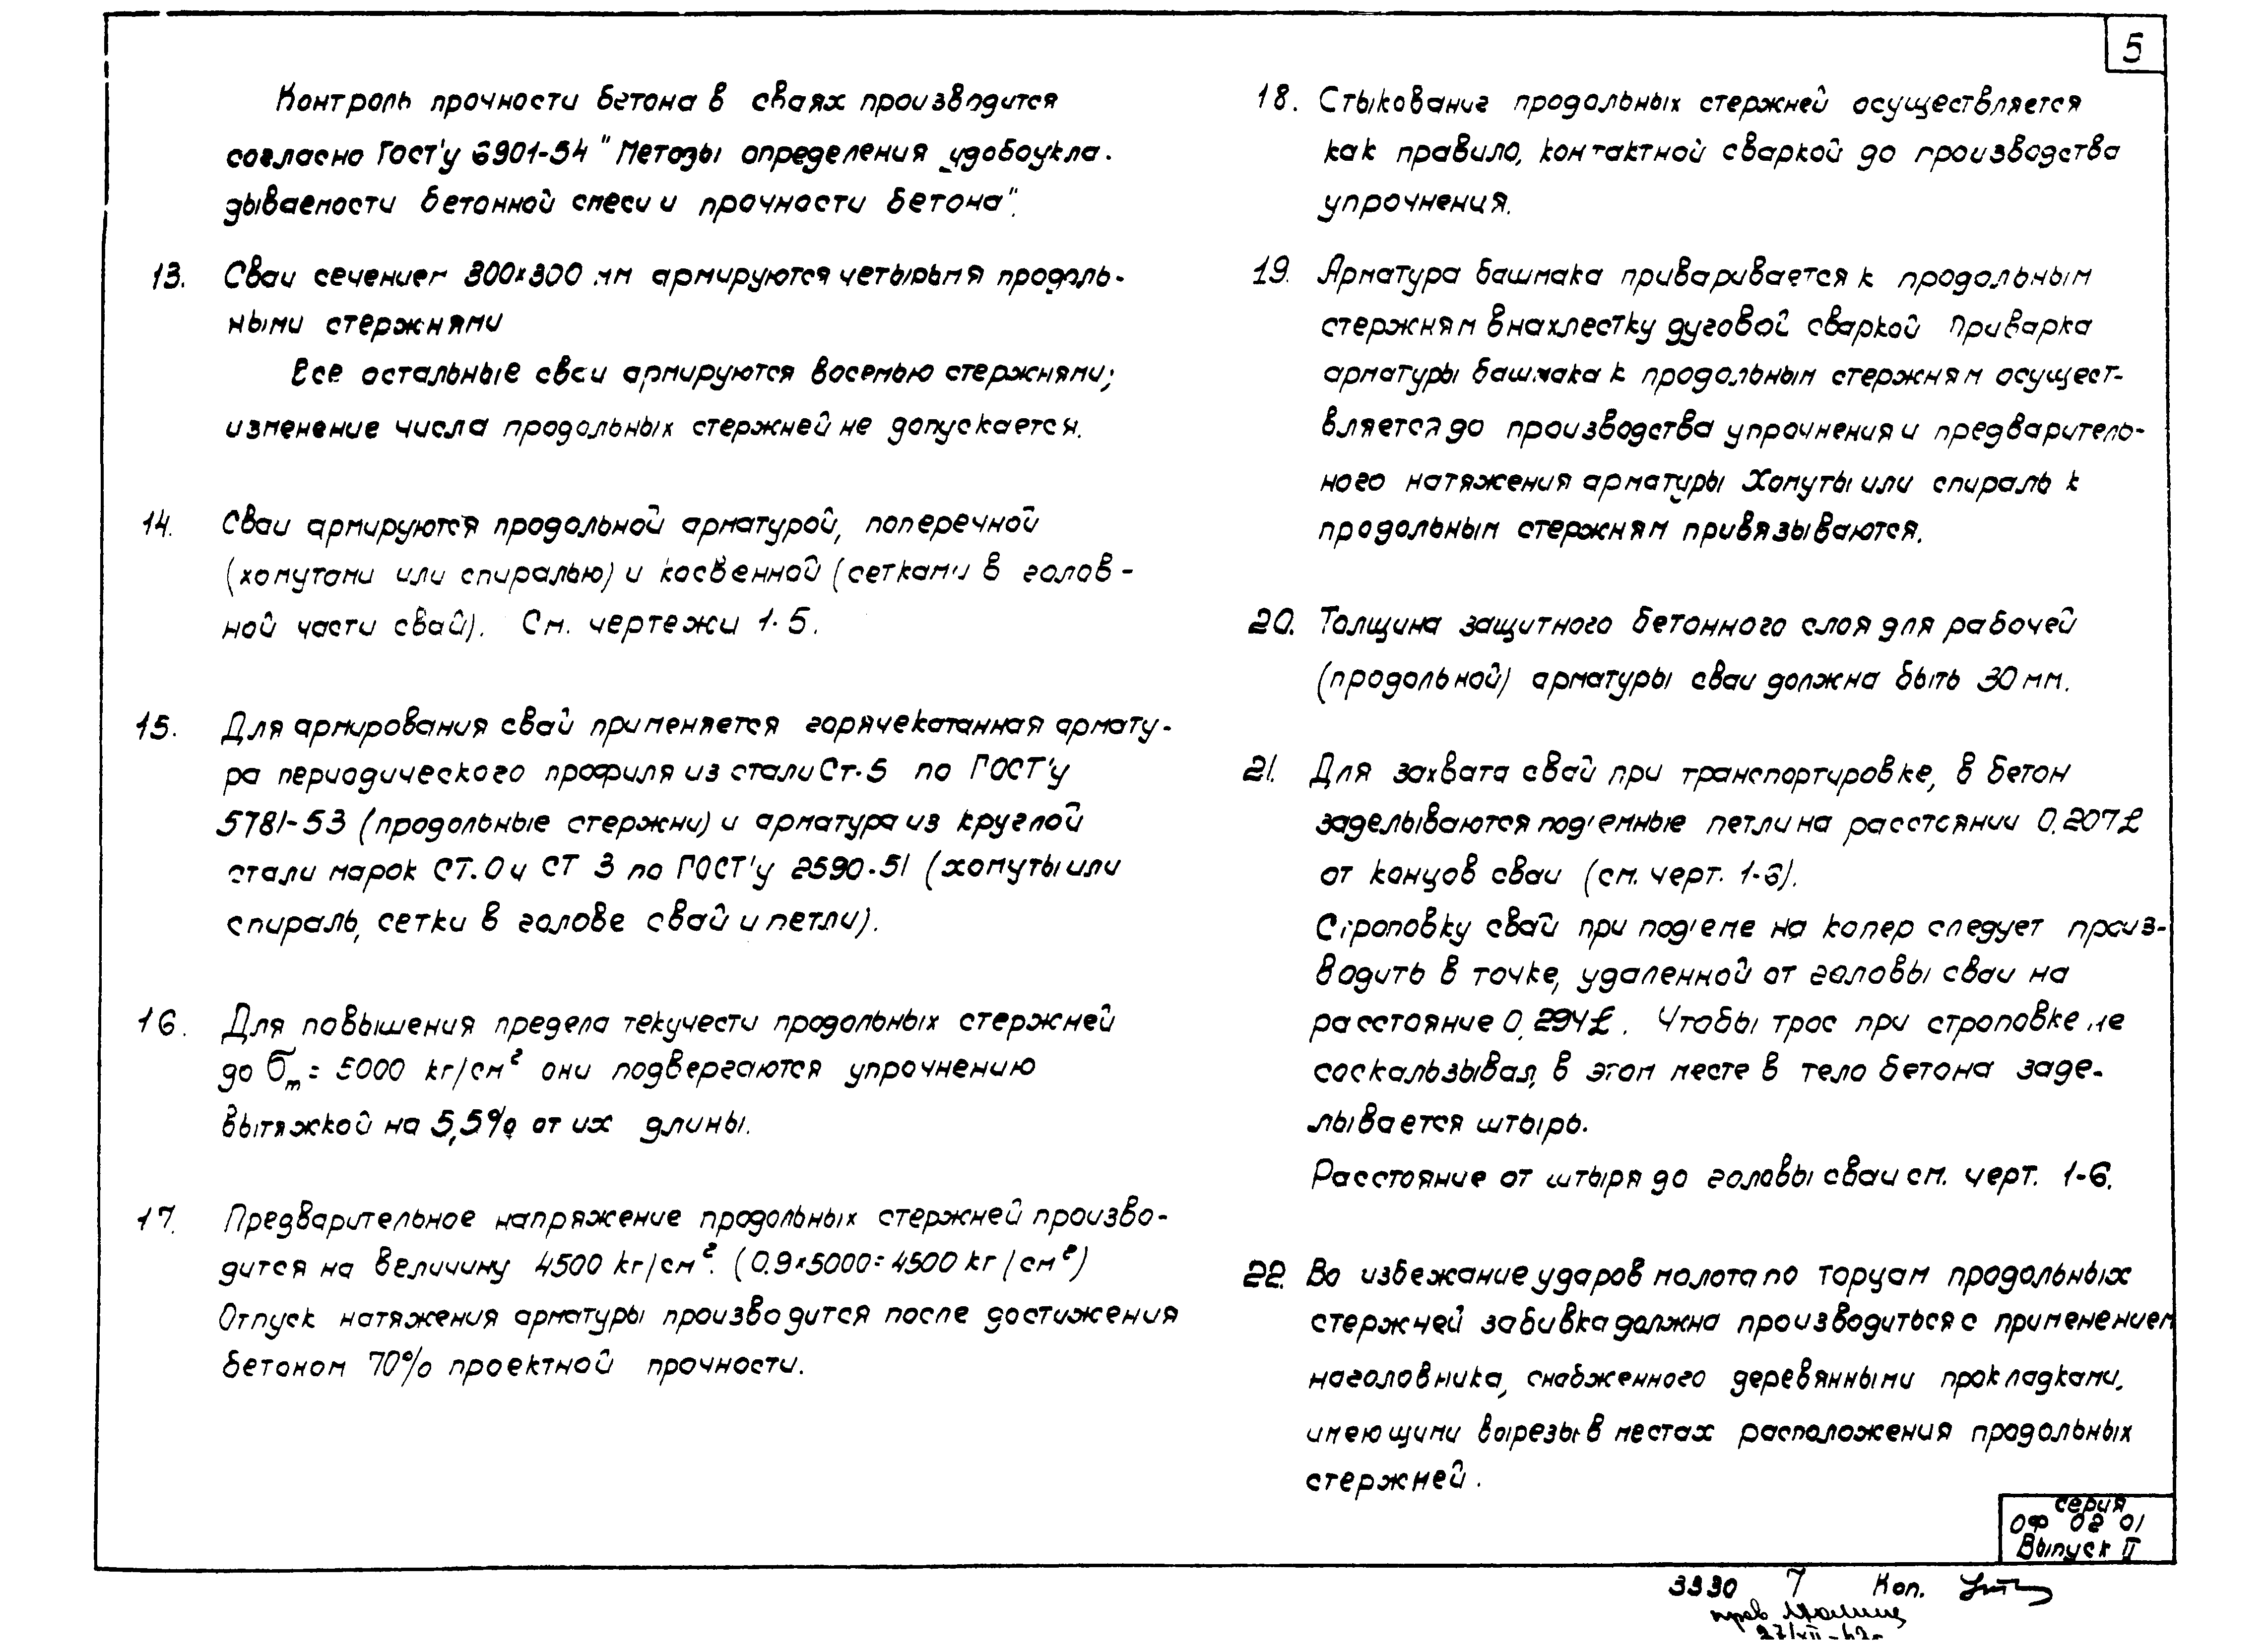 5
Контроль прочности бетона в сваях производится
согласно ГОСТ'у 6901-54 "Методы определения удобоукла-
дываемости бетонной смеси и прочности бетона".
13. Сваи сечением 300×300 мм армируются четырьмя продоль-
ными стержнями
Все остальные сваи армируются восемью стержнями;
изменение числа продольных стержней не допускается.
14. Сваи армируются продольной арматурой, поперечной
(хомутами или спиралью) и косвенной (сетками в голов-
ной части свай). См. чертежи 1-5.
15. Для армирования свай применяется горячекатанная армату-
ра периодического профиля из стали Ст.5 по ГОСТ'у
5781-53 (продольные стержни) и арматура из круглой
стали марок СТ.0 и СТ 3 по ГОСТ'у 2590-51 (хомуты или
спираль, сетки в голове свай и петли).
16. Для повышения предела текучести продольных стержней
до σт = 5000 kг/см² они подвергаются упрочнению
вытяжкой на 5,5% от их длины.
17. Предварительное напряжение продольных стержней произво-
дится на величину 4500 kг/см². (0.9×5000=4500 kг/см²)
Отпуск натяжения арматуры производится после достижения
бетоном 70% проектной прочности.
18. Стыкование продольных стержней осуществляется
как правило, контактной сваркой до производства
упрочнения.
19. Арматура башмака приваривается к продольным
стержням внахлестку дуговой сваркой Приварка
арматуры башмака к продольным стержням осущест-
вляется до производства упрочнения и предваритель-
ного натяжения арматуры Хомуты или спираль к
продольным стержням привязываются.
20. Толщина защитного бетонного слоя для рабочей
(продольной) арматуры сваи должна быть 30 мм.
21. Для захвата свай при транспортировке, в бетон
заделываются под'емные петли на расстоянии 0.207ℓ
от концов сваи (см. черт. 1-6).
Строповку свай при под'еме на копер следует произ-
водить в точке, удаленной от головы сваи на
расстояние 0.294ℓ. Чтобы трос при строповке не
соскальзывал, в этом месте в тело бетона заде-
лывается штырь.
Расстояние от штыря до головы сваи см. черт. 1-6.
22. Во избежание ударов молота по торцам продольных
стержней забивка должна производиться с применением
наголовника, снабженного деревянными прокладками,
имеющими вырезы в местах расположения продольных
стержней.
серия
ОФ 02 01
Выпуск II
3330 7 Коп.